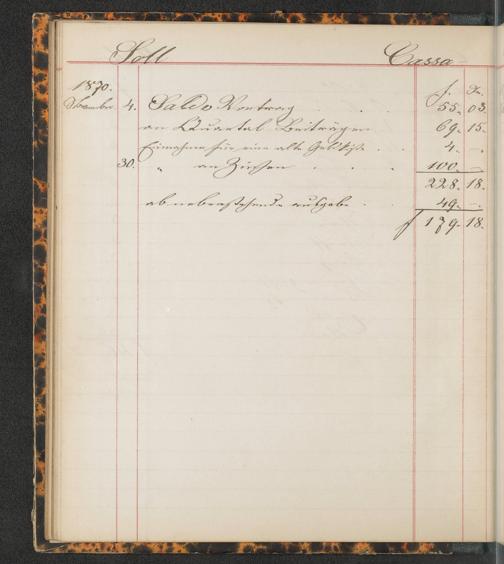 Soll Cassa
1870. f. x.
November 4. Saldo Vortrag . . . 55. 03
an Quartal Beiträgen 69. 15.
Einnahme für eine alte Geldkiste . . 4. -.
30. " an Zinsen . . . . 100. -.
228. 18.
ab nebenstehende Ausgabe . . 49. -.
f 179. 18.